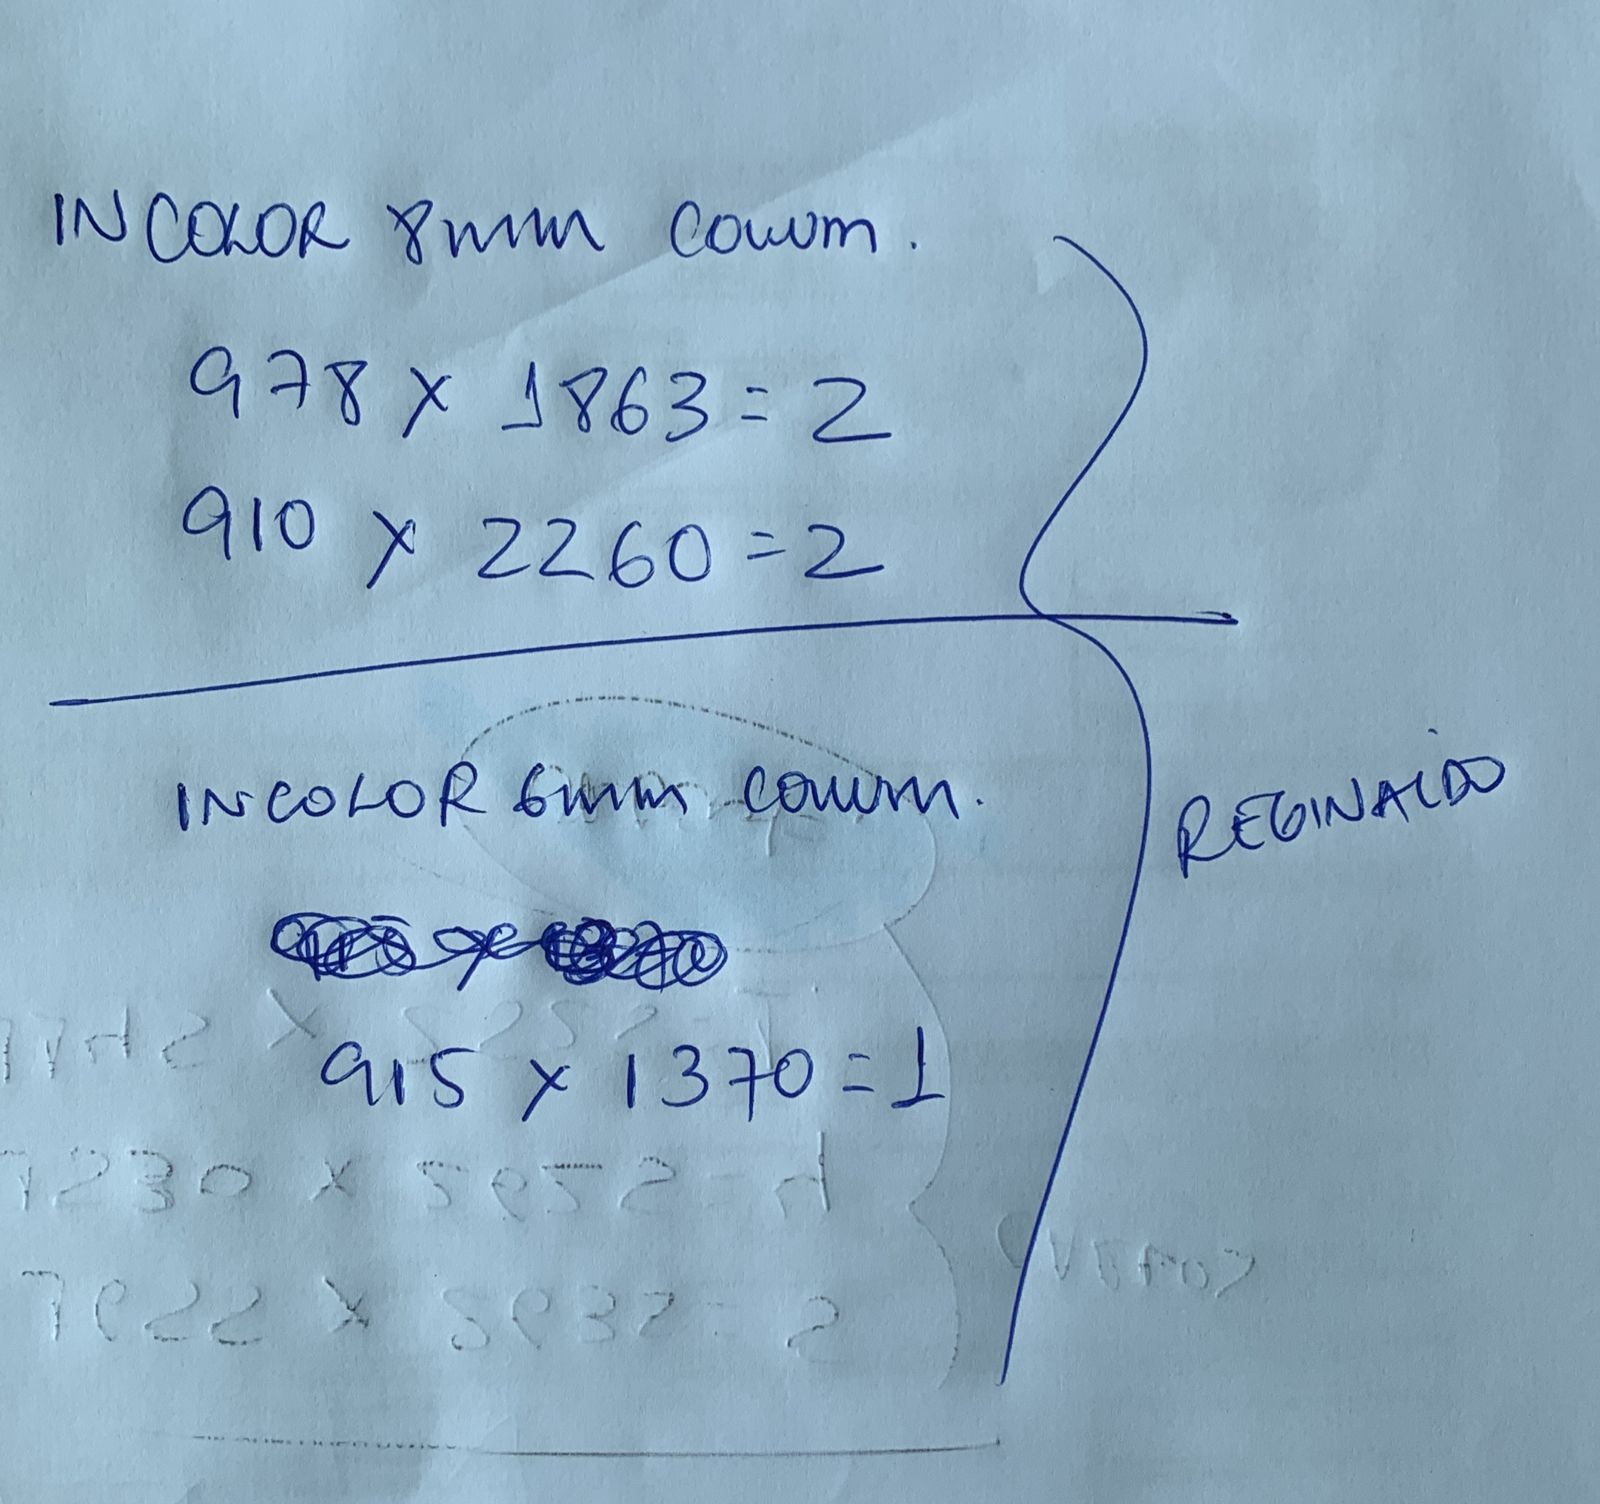 INCOLOR 8mm comum.
978 x 1863 = 2
910 x 2260 = 2
INCOLOR 6mm comum.
915 x 1370 = 1
REGINALDO